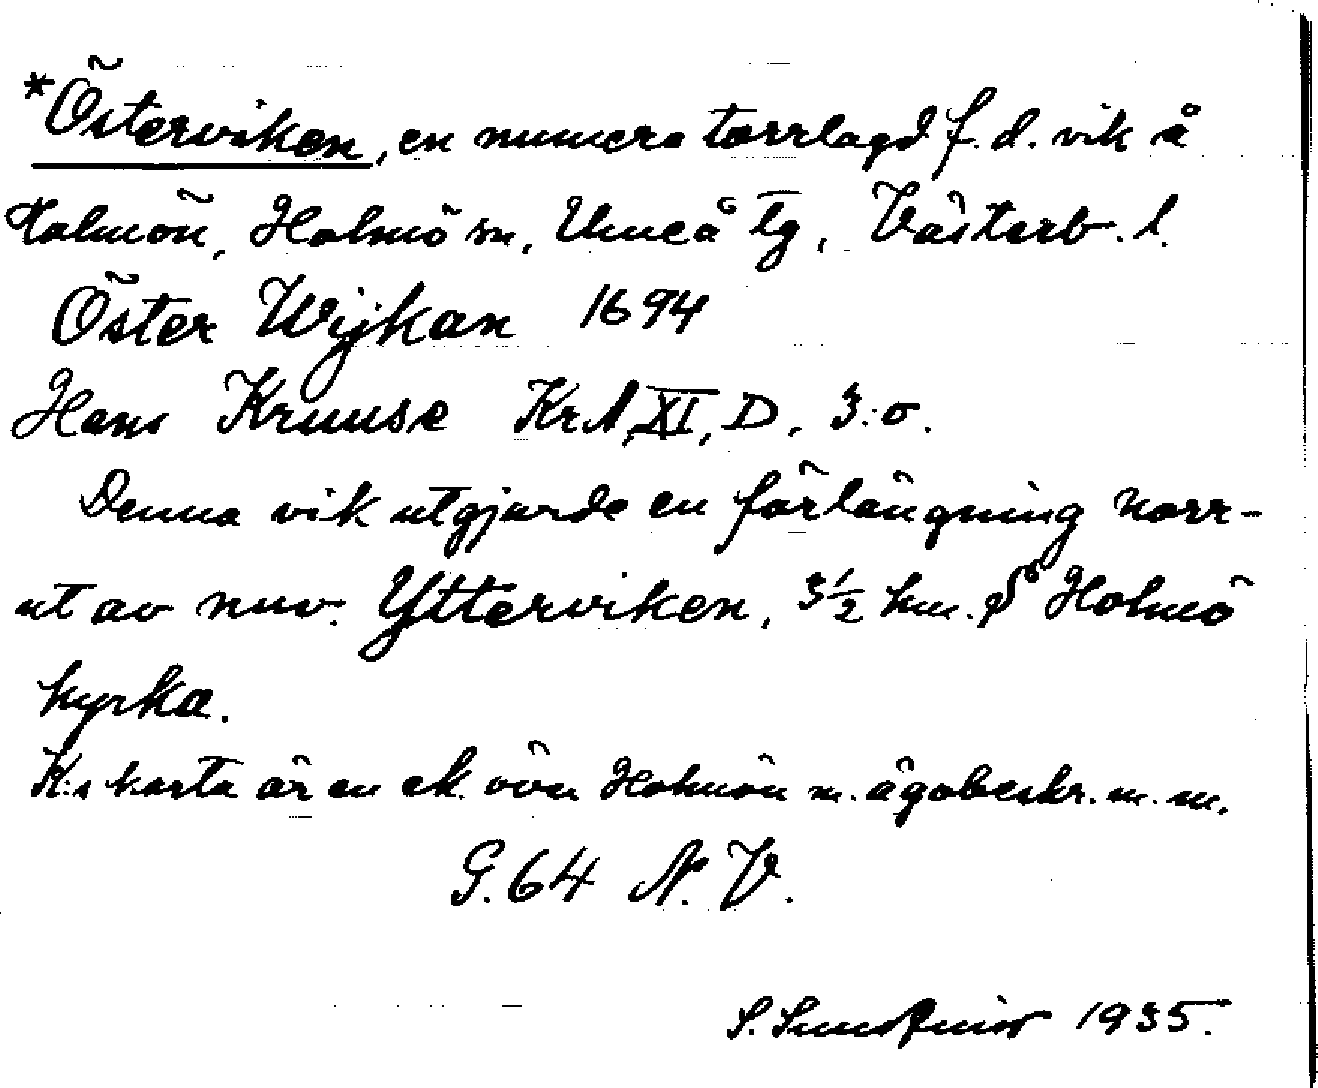 *Österviken, en numera torrlagd f.d. vik å
Holmön, Holmö sn, Umeå tg, Västerb. l.
Öster Wijkan 1694
Hans Kruuse KrA, XI, D, 3:o.
Denna vik utgjorde en förlängning norr-
ut av nuv. Ytterviken, 3½ km. S Holmö
kyrka.
K:s karta är en ek. över Holmön m. ägobeskr. m. m.
G. 64 N. V.
1935.